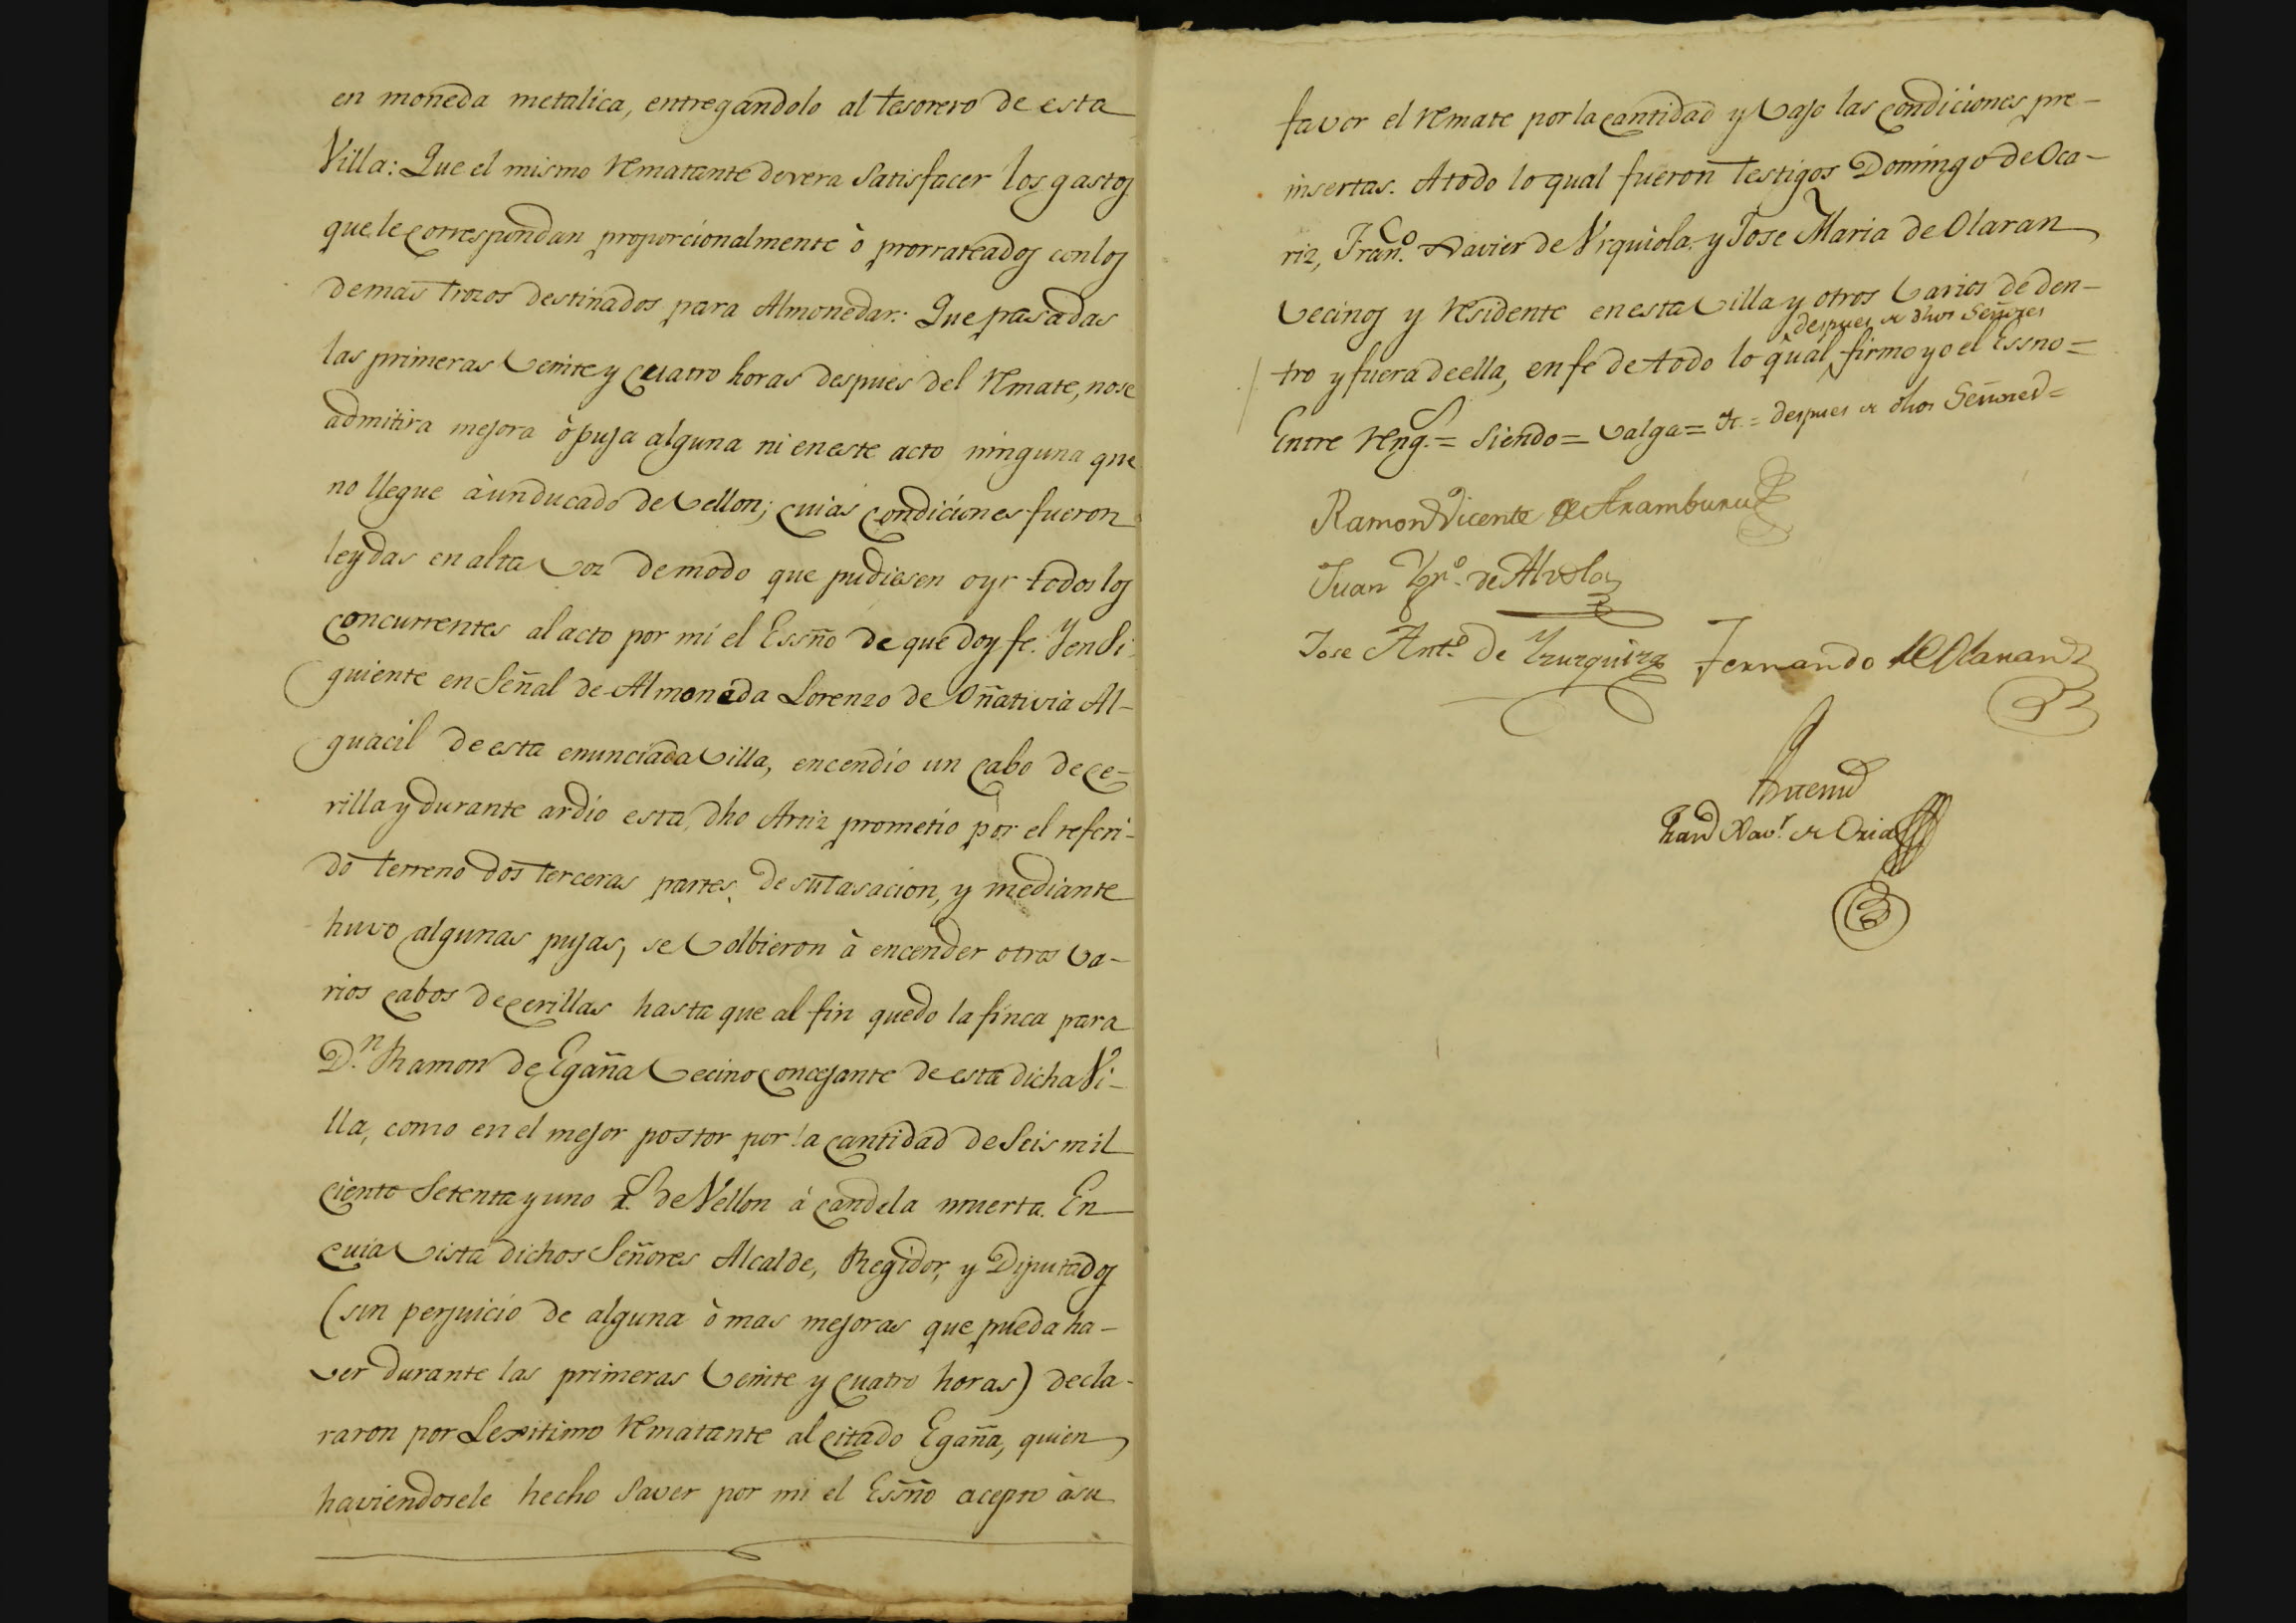 en moneda metalica, entregandolo al tesorero de esta
Villa: Que el mismo Rematante devera Satisfacer los gastos
que le correspondan proporcionalmente ò prorrateados con los
demas trozos destinados para Almonedar: Que pasadas
las primeras veinte y cuatro horas despues del Remate, no se
admitira mejora ò puja alguna ni en este acto ninguna que
no llegue à un ducado de vellon; cuias condiciones fueron
leydas en alta voz de modo que pudiesen oyr todos los
concurrentes al acto por mi el Essño de que doy fe. Y en Si
guiente en Señal de Almoneda Lorenzo de Oñativia Al-
guacil de esta enunciada villa, encendio un cabo de ce-
rilla y durante ardio esta, dho Artiz prometio por el referi-
do terreno dos terceras partes de su tasacion, y mediante
huvo algunas pujas, se volbieron à encender otros va-
rios cabos de cerillas hasta que al fin quedo la finca para
D.n Ramon de Egaña vecino concejante de esta dicha Vi-
lla, como en el mejor postor por la cantidad de Seis mil
ciento Setenta y uno r.s de Vellon à candela muerta. En
cuia vista dichos Señores Alcalde, Regidor, y Diputados
(sin perjuicio de alguna ò mas mejoras que pueda ha-
ver durante las primeras veinte y cuatro horas) decla-
raron por Lexitimo Rematante al citado Egaña, quien
haviendosele hecho Saver por mi el Essño acepto à su
favor el Remate por la cantidad y vajo las condiciones pre-
insertas. A todo lo qual fueron testigos Domingo de Oca-
riz, Fran.co Xavier de Urquiola, y Jose Maria de Olaran
vecinos y Residente en esta villa y otros varios de den-
despues de dhos Señores
tro y fuera de ella, en fe de todo lo qual, firmo yo el Essno=
Entre Reng.s = Siendo = valga = Yt. = despues de dhos Señores =
Ramon Vicente de Aramburu
Juan Ygn.o de Alvola
Jose Ant.o de Yzuzquiza Fernando de Olaran
Antemi
Xav.r de Oria